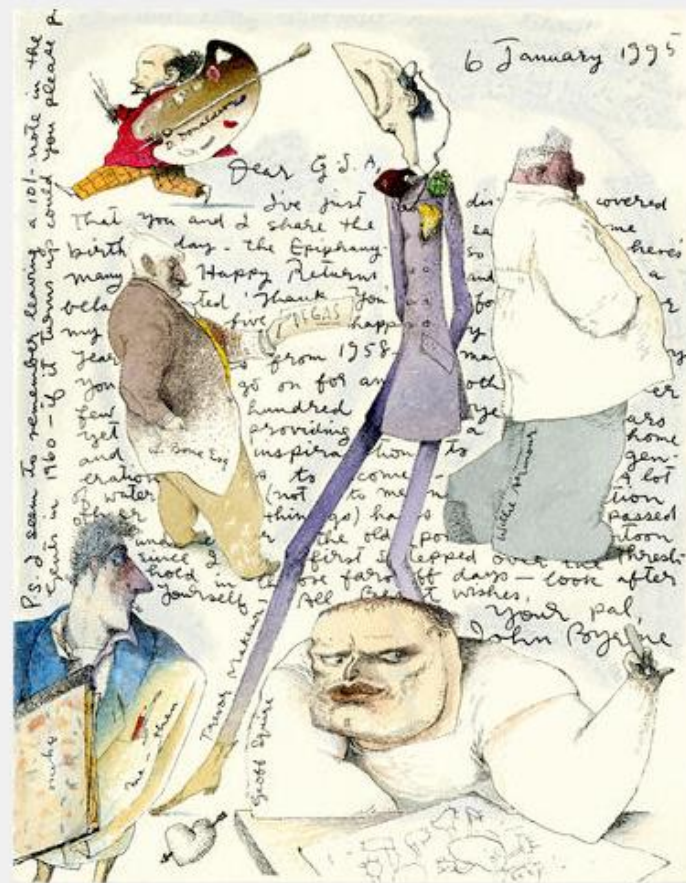 6 January 1995
Dear G.S.A,
I've just dis covered
That you and I share the sa me
birth day - the Epiphany - so here's
many Happy Returns and a
bela ted 'Thank You' fo r
my five happ y
years from 1958 - ma y
you go on for an oth er
few hundred ye ars
yet providing a home
and inspiration to gen-
eration s to come - A lot
of water (not to me n tion
other things) has passed
the old
since I first stepped over the thresh-
hold in those far off days - look after
yourself, All Best wishes,
Your pal,
John Byrne
P.S. I seem to remember leaving a 10/- note in the
in 1960 - if it turns up could you please p
D. Donaldson
DEGAS
W. Bone Esq
Willie Armour
Trevor
Geoff Squire
me - then